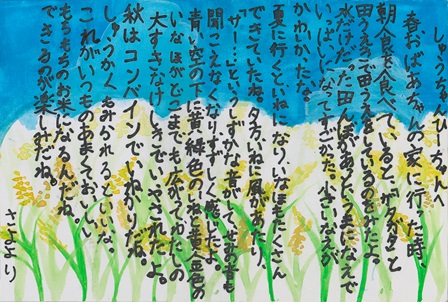 しょうくん、ひーくんへ
春おばあちゃんの家に行った時、
朝食を食べていると、ガタガタと
田うえきで田うえをしているのが見えたよ。
水だけだった田んぼがあっというまになえで
いっぱいになってすごかった。小さいなえが
かわいかったな。
夏に行くといねになり、いなほもたくさん
できていたね。夕方いねに風があたり、
「サー…」というしずかな音がして、せみの音も
聞こえなくなりすずしく感じたよ。
青い空の下に黄緑色のいなほと黄金色の
いなほがどこまでも広がってわたしの
大すきなけしきでいやされたよ。
秋はコンバインでいねかりだね。
しゅうかくもみかれるといいな。
これがいつものあまくておいしい
もちもちのお米になるんだね。
できるのが楽しみだね。
さほより